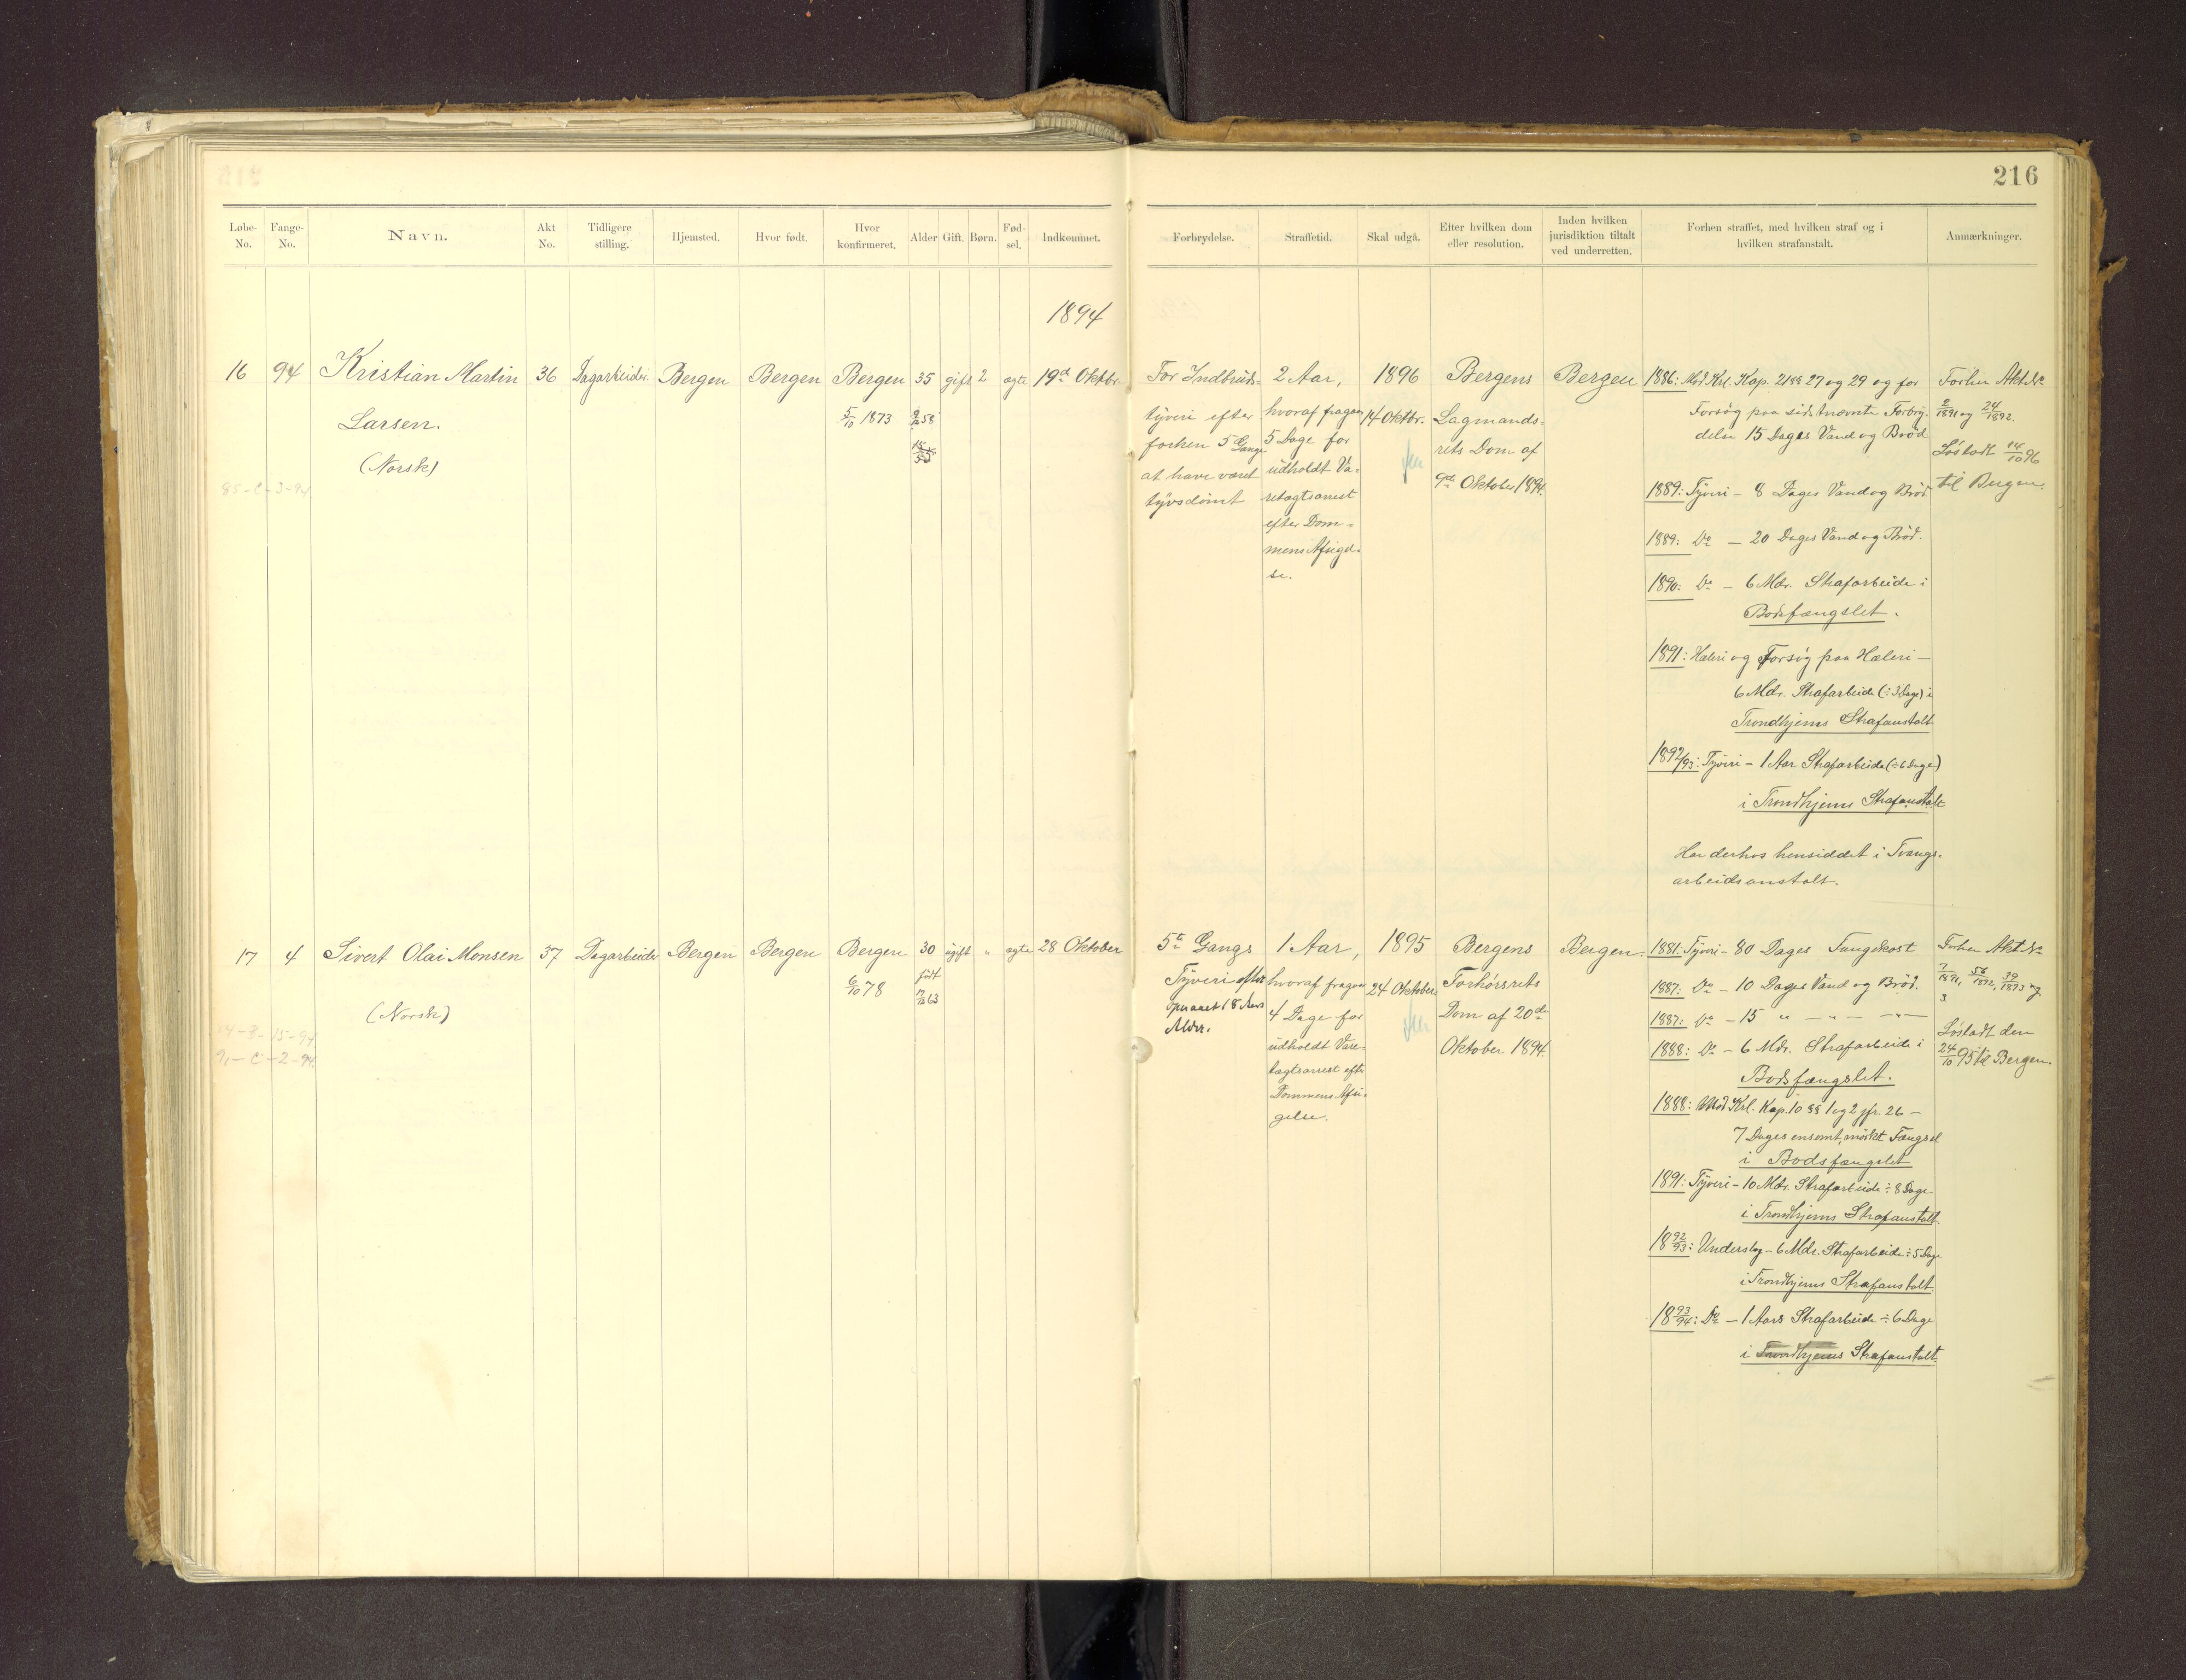 216
Løbe-No. Fange-No. Navn. Akt No. Tidligere stilling. Hjemsted. Hvor født. Hvor konfirmeret. Alder Gift. Børn. Fød-sel. Indkommet.
Forbrydelse. Straffetid. Skal udgå. Efter hvilken dom eller resolution. Inden hvilken jurisdiktion tiltalt ved underretten. Forhen straffet, med hvilken straf og i hvilken strafanstalt. Anmærkninger.
1894
16 94 Kristian Martin 36 Dagarbeider Bergen Bergen Bergen 35 gift 2 ægte 19d Oktbr.
Larsen.
5/10 1873
(Norsk)
85-C-3-94
For Indbruds-
tyveri efter
forhen 5 Gange
at have været
tyvsdømt
2 Aar,
hvoraf fragaar
5 Dage for
udholdt Va-
retægtsarrest
efter Dom-
mens Afsigel-
se.
1896
14 Oktbr.
Bergens
Lagmands-
rets Dom af
9de Oktober 1894.
Bergen
1886: Mod Krl. Kap. 21 §§ 27 og 29 og for
Forsøg paa sidstnævnte Forbry-
delse 15 Dages Vand og Brød
1889: Tyveri - 8 Dages Vand og Brød
1889: Do - 20 Dages Vand og Brød.
1890: Do - 6 Mdr. Strafarbeide i
Bodsfængslet.
1891: Hæleri og Forsøg paa Hæleri -
6 Mdr. Strafarbeide (÷ 3 Dage) i
Trondhjems Strafanstalt
1892/93: Tyveri - 1 Aar Strafarbeide (÷ 6 Dage)
i Trondhjems Strafanstalt
Har derhos hensiddet i Tvangs-
arbeidsanstalt.
Forhen Akt No
2/1891 og 24/1892.
Løsladt 14/10 96
til Bergen.
17 4 Sivert Olai Monsen 37 Dagarbeider Bergen Bergen Bergen 30 ugift " ægte 28 Oktober
6/10 78
født
(Norsk)
5te Gangs
Tyveri efter
opnaaet 18 Aars
Alder.
1 Aar,
hvoraf fragaar
4 Dage for
udholdt Vare-
tægtsarrest efter
Dommens Afsi-
gelse.
1895
24 Oktober
Bergens
Forhørsrets
Dom af 20de
Oktober 1894.
Bergen.
1881: Tyveri - 80 Dages Fangekost
1887: Do - 10 Dages Vand og Brød.
1887: Do - 15 " - " - " -
1888: Do - 6 Mdr. Strafarbeide i
Bodsfængslet.
1888: Mod Krl. Kap. 10 §§ 1 og 2 jfr. 26 -
7 Dages ensomt, mørkt Fængsel
i Bodsfængslet
1891: Tyveri - 10 Mdr. Strafarbeide ÷ 8 Dage
i Trondhjems Strafanstalt.
1892/93: Underslag - 6 Mdr. Strafarbeide ÷ 5 Dage
i Trondhjems Strafanstalt
1893/94: Do - 1 Aars Strafarbeide ÷ 6 Dage
i Trondhjems Strafanstalt.
Forhen Akt No
7/1891, 56/1892, 39/1893 og
3
Løsladt den
24/10 95 til Bergen.